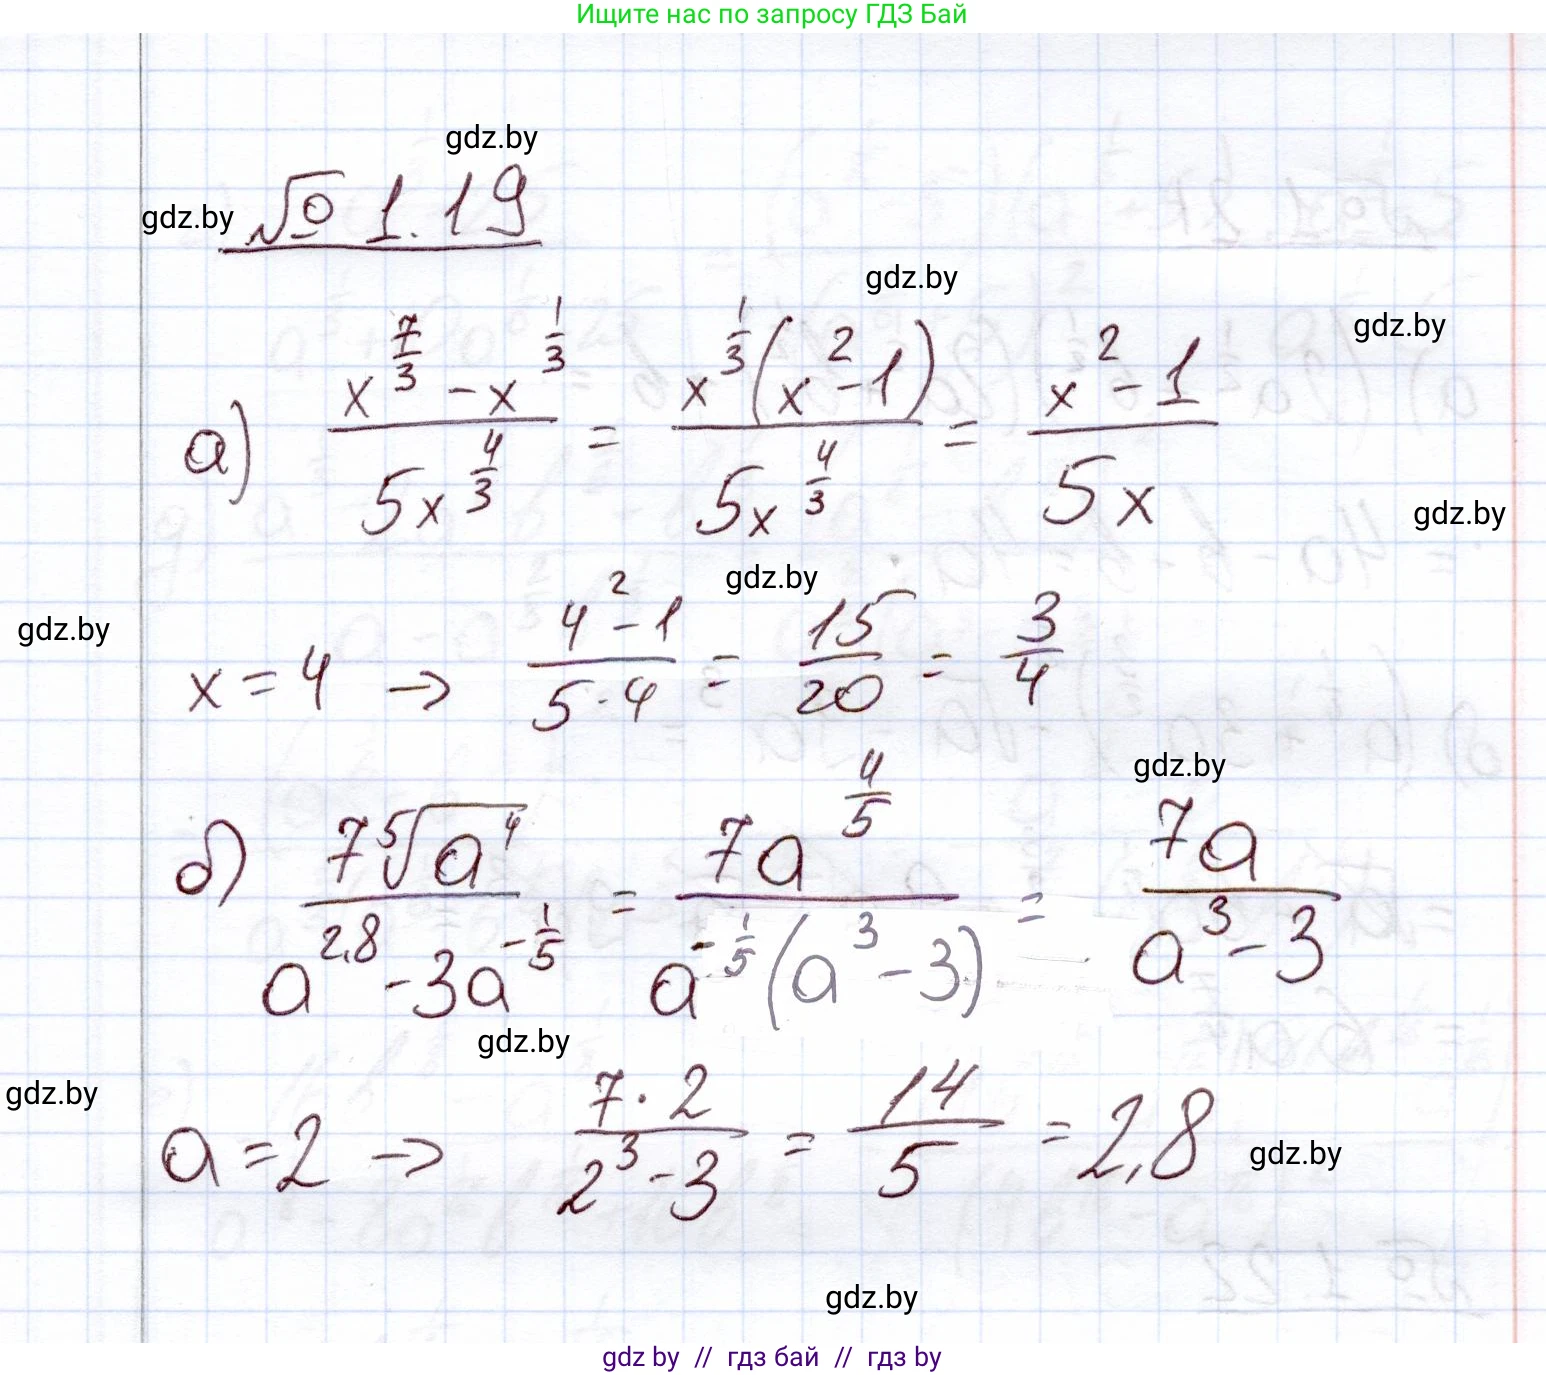 Ищите нас по запросу ГДЗ Бай
gdz.by
gdz.by № 1.19
gdz.by
gdz.by
а) (x^(7/3) - x^(1/3))/(5x^(4/3)) = (x^(1/3)(x^2 - 1))/(5x^(4/3)) = (x^2 - 1)/(5x)
gdz.by
gdz.by
gdz.by
x = 4 → (4^2 - 1)/(5·4) = 15/20 = 3/4
gdz.by
б) (7⁵√(a^4))/(a^(2,8) - 3a^(-1/5)) = (7a^(4/5))/(a^(-1/5)(a^3 - 3)) = (7a)/(a^3 - 3)
gdz.by
gdz.by
a = 2 → (7·2)/(2^3 - 3) = 14/5 = 2,8
gdz.by
gdz.by
gdz by // гдз бай // гдз by